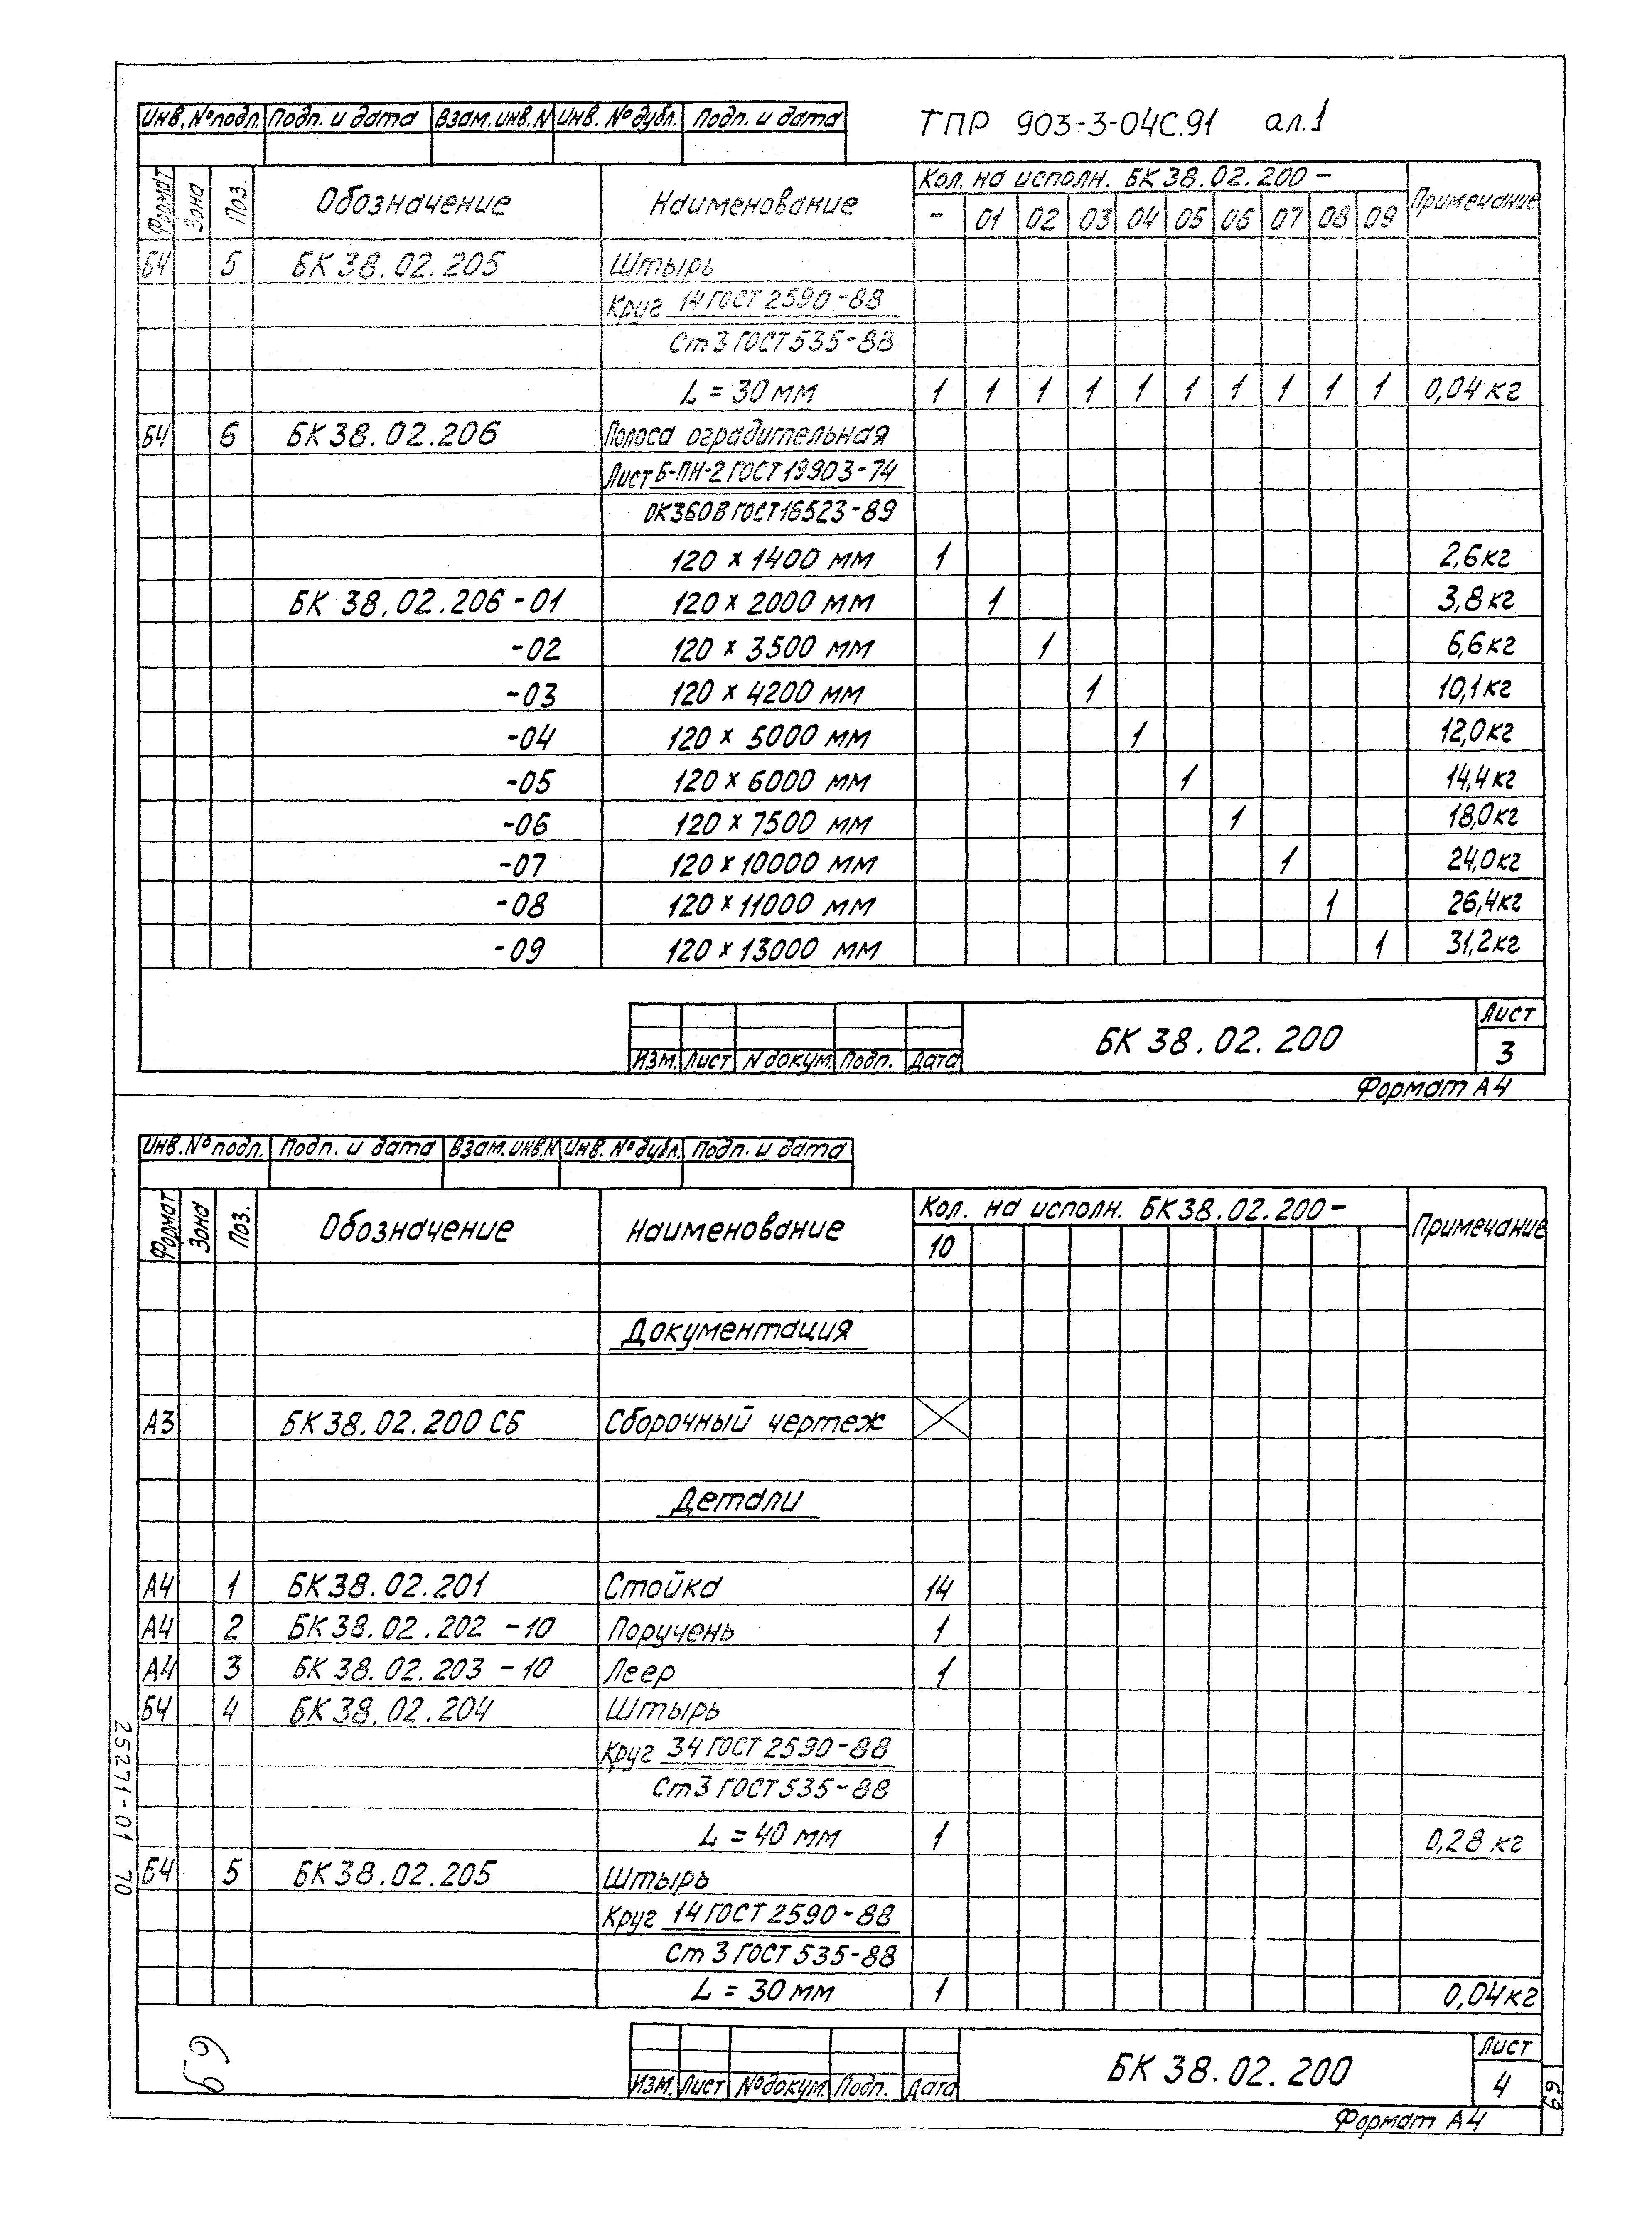 Инв. № подл. Подп. и дата Взам. инв. N Инв. № дубл. Подп. и дата
ТПР 903-3-04С.91 ал.1
Формат Зона Поз. Обозначение Наименование Кол. на исполн. БК 38.02.200 – Примечание
– 01 02 03 04 05 06 07 08 09
БЧ 5 БК 38.02.205 Штырь
Круг 14 ГОСТ 2590-88
Ст 3 ГОСТ 535-88
L = 30 мм 1 1 1 1 1 1 1 1 1 1 0,04 кг
БЧ 6 БК 38.02.206 Полоса оградительная
Лист Б-ПН-2 ГОСТ 19903-74
ОК360В ГОСТ 16523-89
120 х 1400 мм 1 2,6 кг
БК 38.02.206-01 120 х 2000 мм 1 3,8 кг
-02 120 х 3500 мм 1 6,6 кг
-03 120 х 4200 мм 1 10,1 кг
-04 120 х 5000 мм 1 12,0 кг
-05 120 х 6000 мм 1 14,4 кг
-06 120 х 7500 мм 1 18,0 кг
-07 120 х 10000 мм 1 24,0 кг
-08 120 х 11000 мм 1 26,4 кг
-09 120 х 13000 мм 1 31,2 кг
Изм. Лист N докум. Подп. Дата БК 38.02.200 Лист
3
Формат А4
Инв. № подл. Подп. и дата Взам. инв. N Инв. № дубл. Подп. и дата
Формат Зона Поз. Обозначение Наименование Кол. на исполн. БК 38.02.200 – Примечание
10
Документация
А3 БК 38.02.200 СБ Сборочный чертеж
Детали
А4 1 БК 38.02.201 Стойка 14
А4 2 БК 38.02.202 -10 Поручень 1
А4 3 БК 38.02.203 -10 Леер 1
БЧ 4 БК 38.02.204 Штырь
Круг 34 ГОСТ 2590-88
Ст 3 ГОСТ 535-88
L = 40 мм 1 0,28 кг
БЧ 5 БК 38.02.205 Штырь
Круг 14 ГОСТ 2590-88
Ст 3 ГОСТ 535-88
L = 30 мм 1 0,04 кг
Изм. Лист № докум. Подп. Дата БК 38.02.200 Лист
4
Формат А4
25271-01 70
69
69